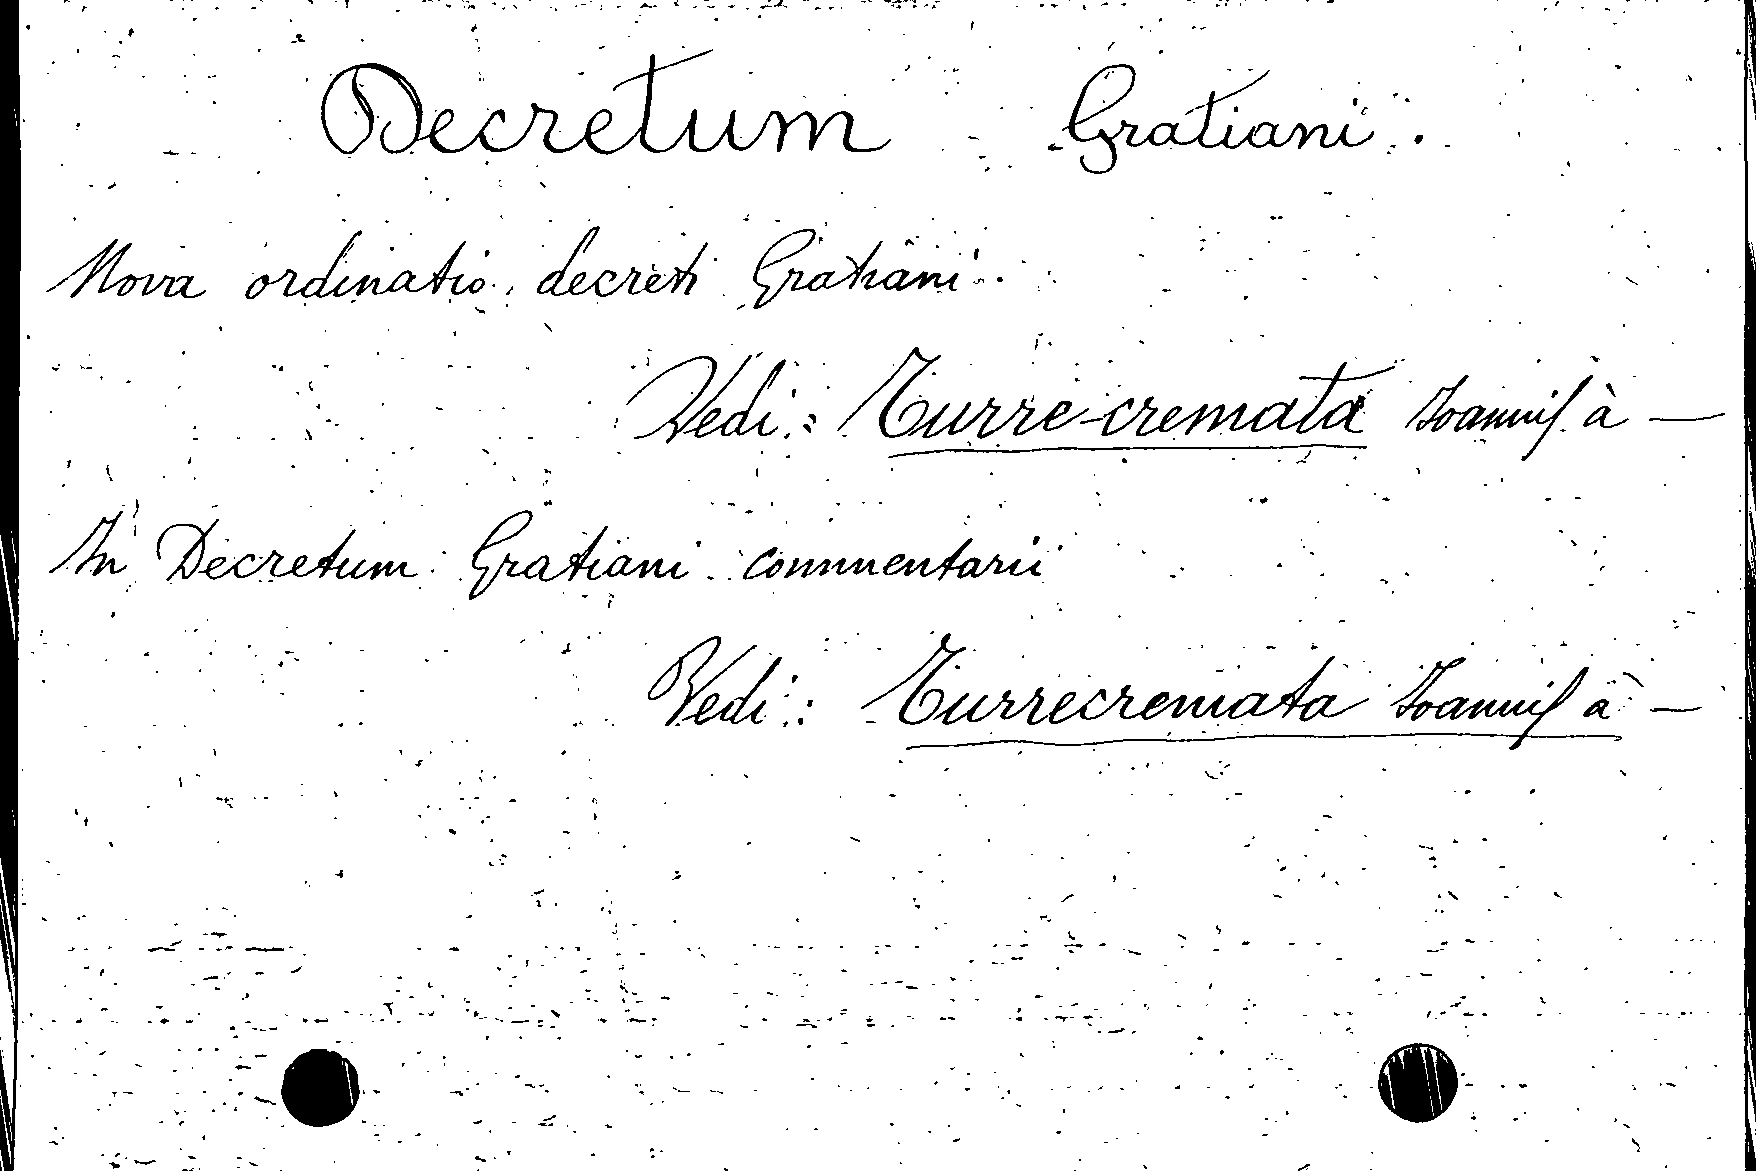 Decretum Gratiani.
Nova ordinatio decreti Gratiani.
Vedi: Turre-cremata Ioannis à —
In Decretum Gratiani commentarii
Vedi: Turrecremata Ioannis à —